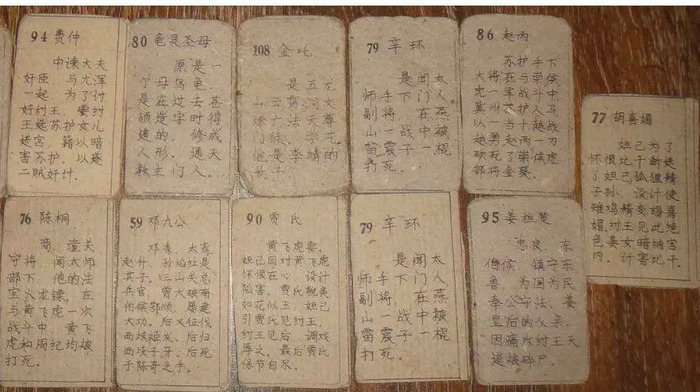 94 费仲
中谏大夫
奸臣 与尤浑
一起 为了讨
好纣王 要纣
王选苏护女儿
进宫，籍以暗
害苏护，以遂
二贼奸计。
80 龟灵圣母
原是一
个母乌龟，
是在过去苍
颉造字时得
道的，修成
人形，通天
教主门人。
108 金吒
是五龙
山云霄洞文
殊广法天尊
门徒，学艺
他是李靖的
79 辛环
是闻太
师手下门人
副将，在燕
山一战中被
雷震子一棍
打死。
86 赵丙
苏护手下
大将在与崇侯
虎一军战斗中，
冀州苏护人马
以一当十越战
越勇赵丙一刀
砍死了崇侯虎
部将金葵。
77 胡喜媚
妲己为了
怀恨比干断送
了妲己狐狸精
子孙，设计使
雉鸡精变胡喜
媚，纣王见此绝
色美女暗纳宫
内，计害比干。
76 陈桐
商 潼关
守将 闻太师
部下 他的法
宝火龙镖，在
与黄飞虎一次
战斗中，黄飞
虎和周纪均被
打死。
59 邓九公
邓秀，太鸾
赵升，孙焰红是
其子。三山关总
兵官，曾大破南
伯侯鄂顺，屡建
大功，后又征伐
西岐姬发，后归
西岐子牙，后死
于陈奇之手。
90 贾氏
黄飞虎妻，
妲己因对黄飞虎
怀恨在心，设计
陷害，贾氏貌美
如花似玉，妲己
引贾氏见纣王，
纣王见后，调戏
辱之，最后贾氏
保节自尽。
79 辛环
是闻太
师手下门人
副将，在燕
山一战中被
雷震子一棍
打死。
95 姜桓楚
忠良，东
伯侯，镇守东
鲁，为国为民
奉公守法，姜
皇后的父亲，
因痛斥纣王无
道被碎尸。